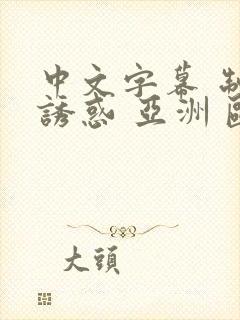 中文字幕 制
誘惑 亞洲
大頭